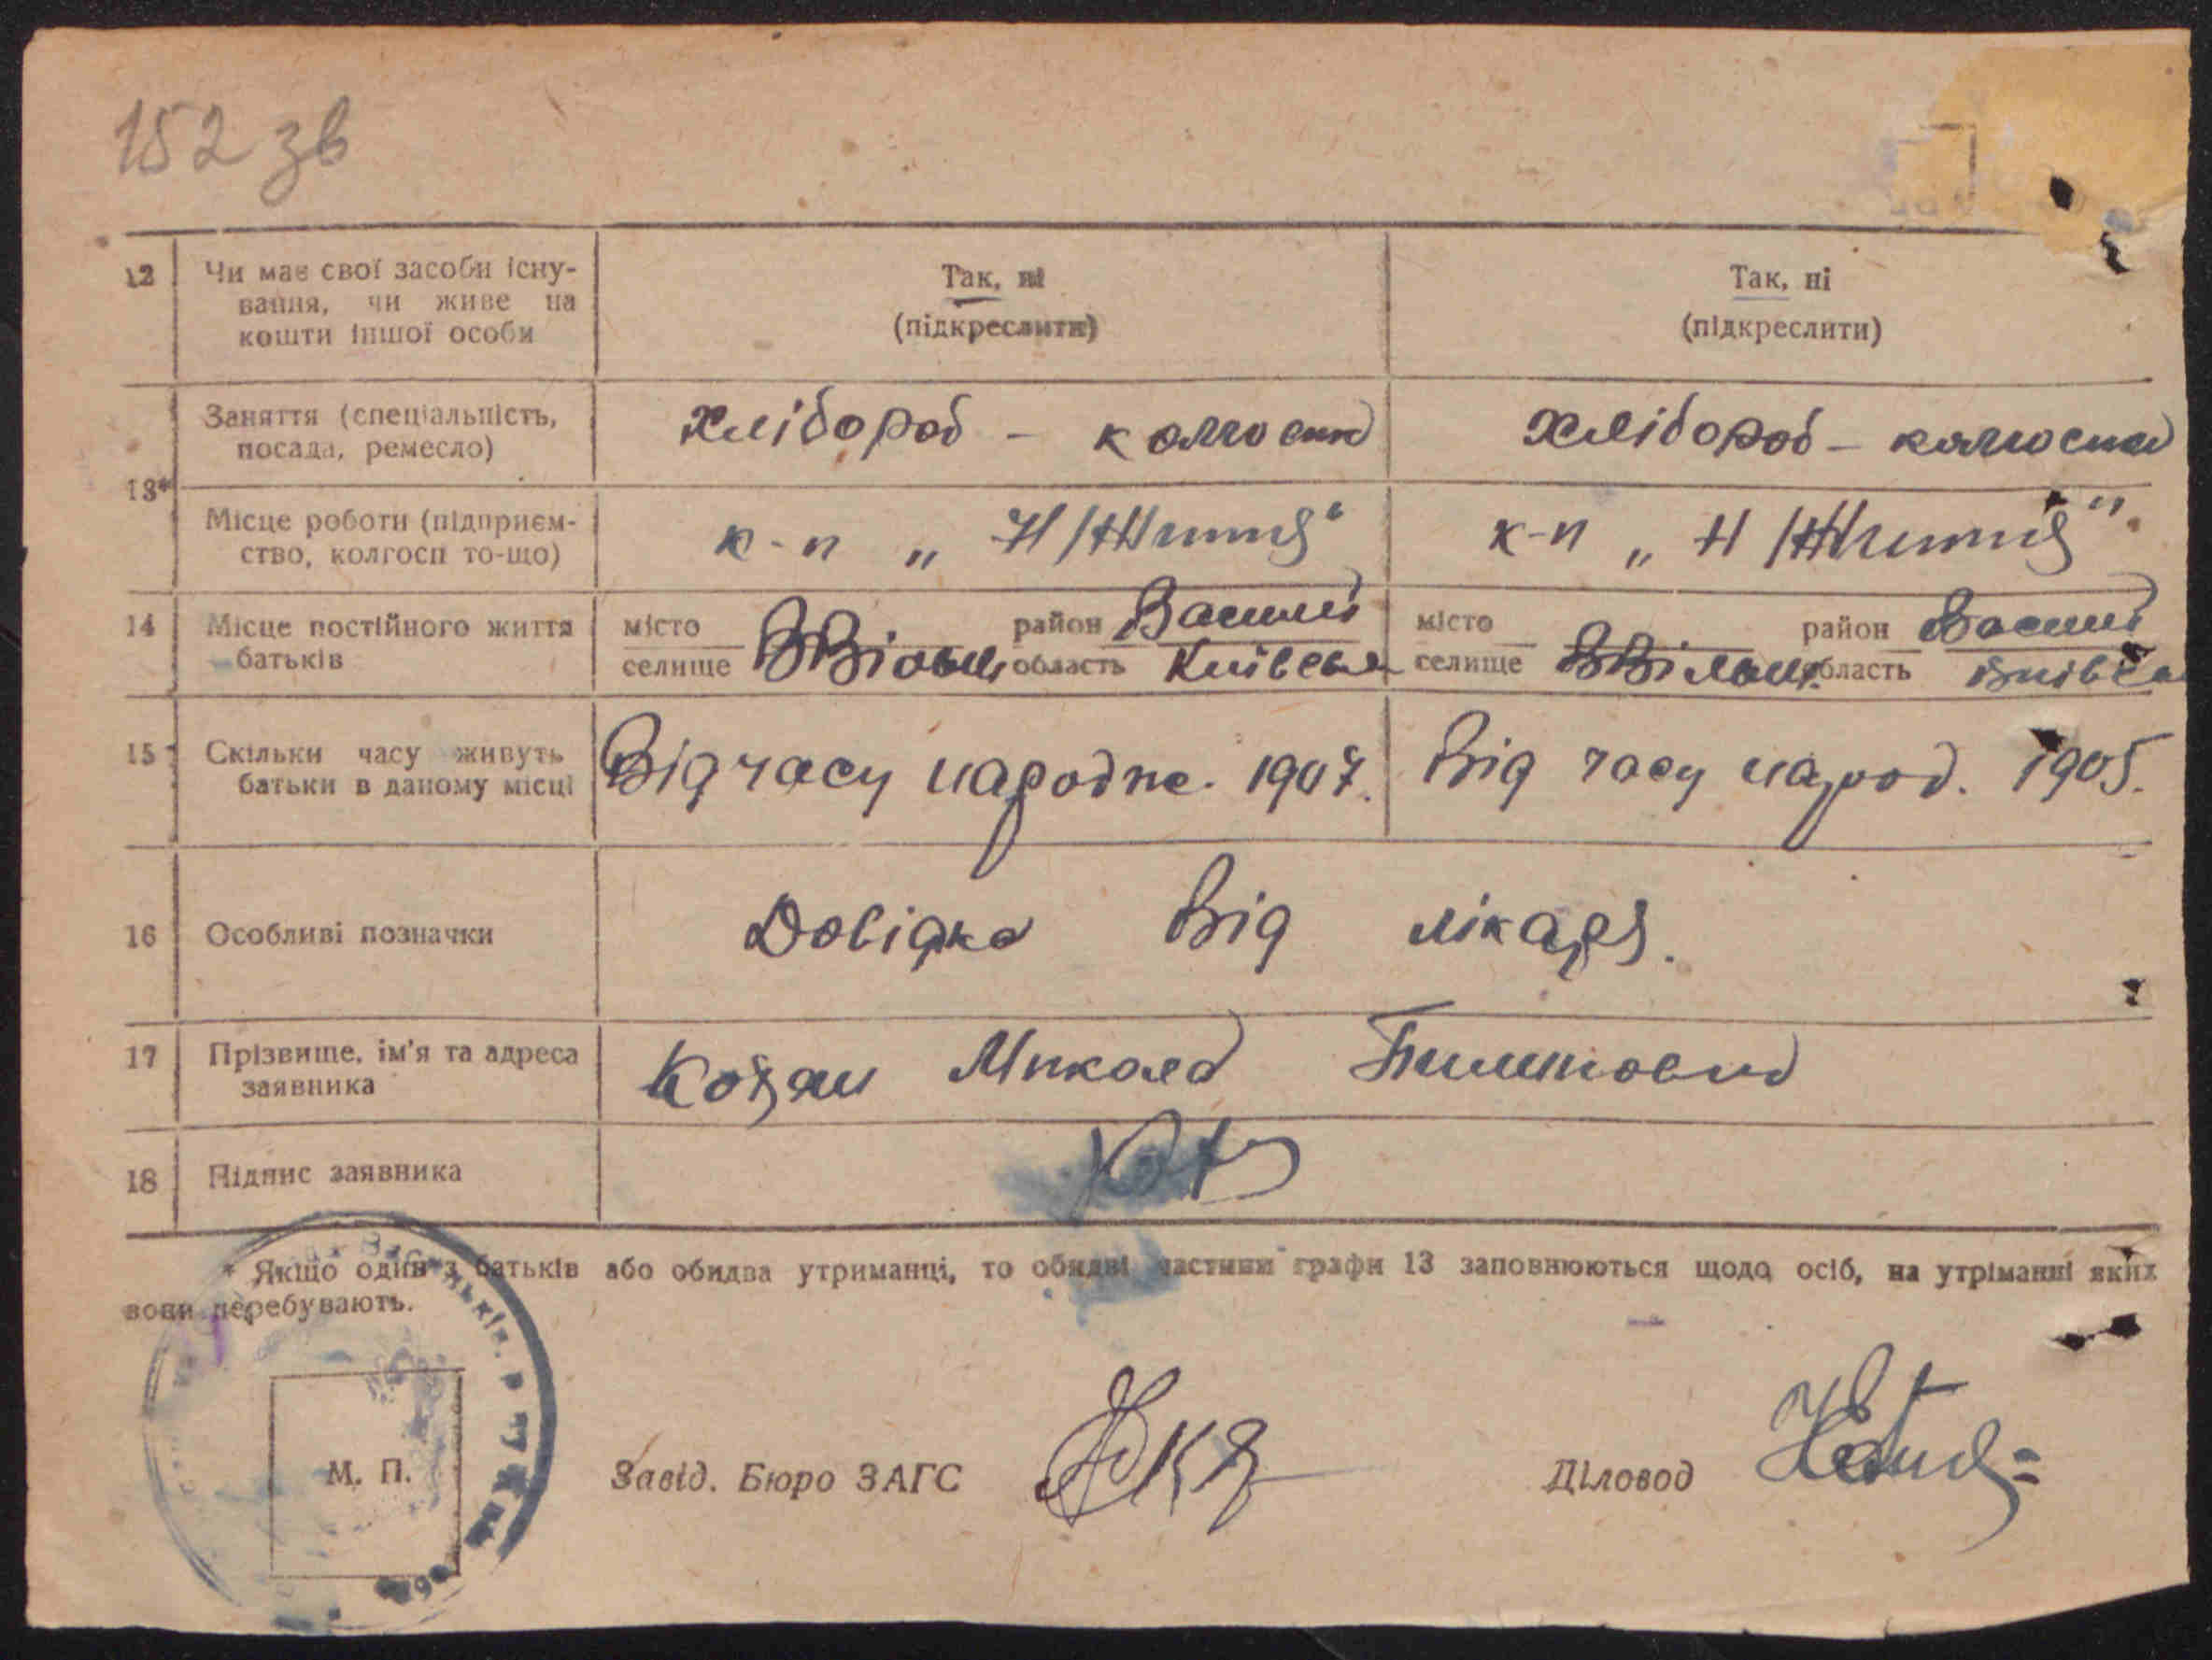 152 зв
12 Чи має свої засоби існу- Так, ні Так, ні
вання, чи живе на (підкреслити) (підкреслити)
кошти іншої особи
Заняття (спеціальність, Хлібороб – Хлібороб –
посада, ремесло)
13*
Місце роботи (підприєм- к-п „Н/Життя“ к-п „Н/Життя“
ство, колгосп то-що)
14 Місце постійного життя місто район місто район
батьків селище область Київська селище область Київська
15 Скільки часу живуть Від часу народже. 1907. Від часу народ. 1905.
батьки в даному місці
16 Особливі позначки Довідка від лікаря.
17 Прізвище, ім'я та адреса Микола
заявника
18 Підпис заявника
* Якщо один з батьків або обидва утриманці, то обидві частини графи 13 заповнюються щодо осіб, на утріманні яких
вони перебувають.
М. П. Завід. Бюро ЗАГС Діловод